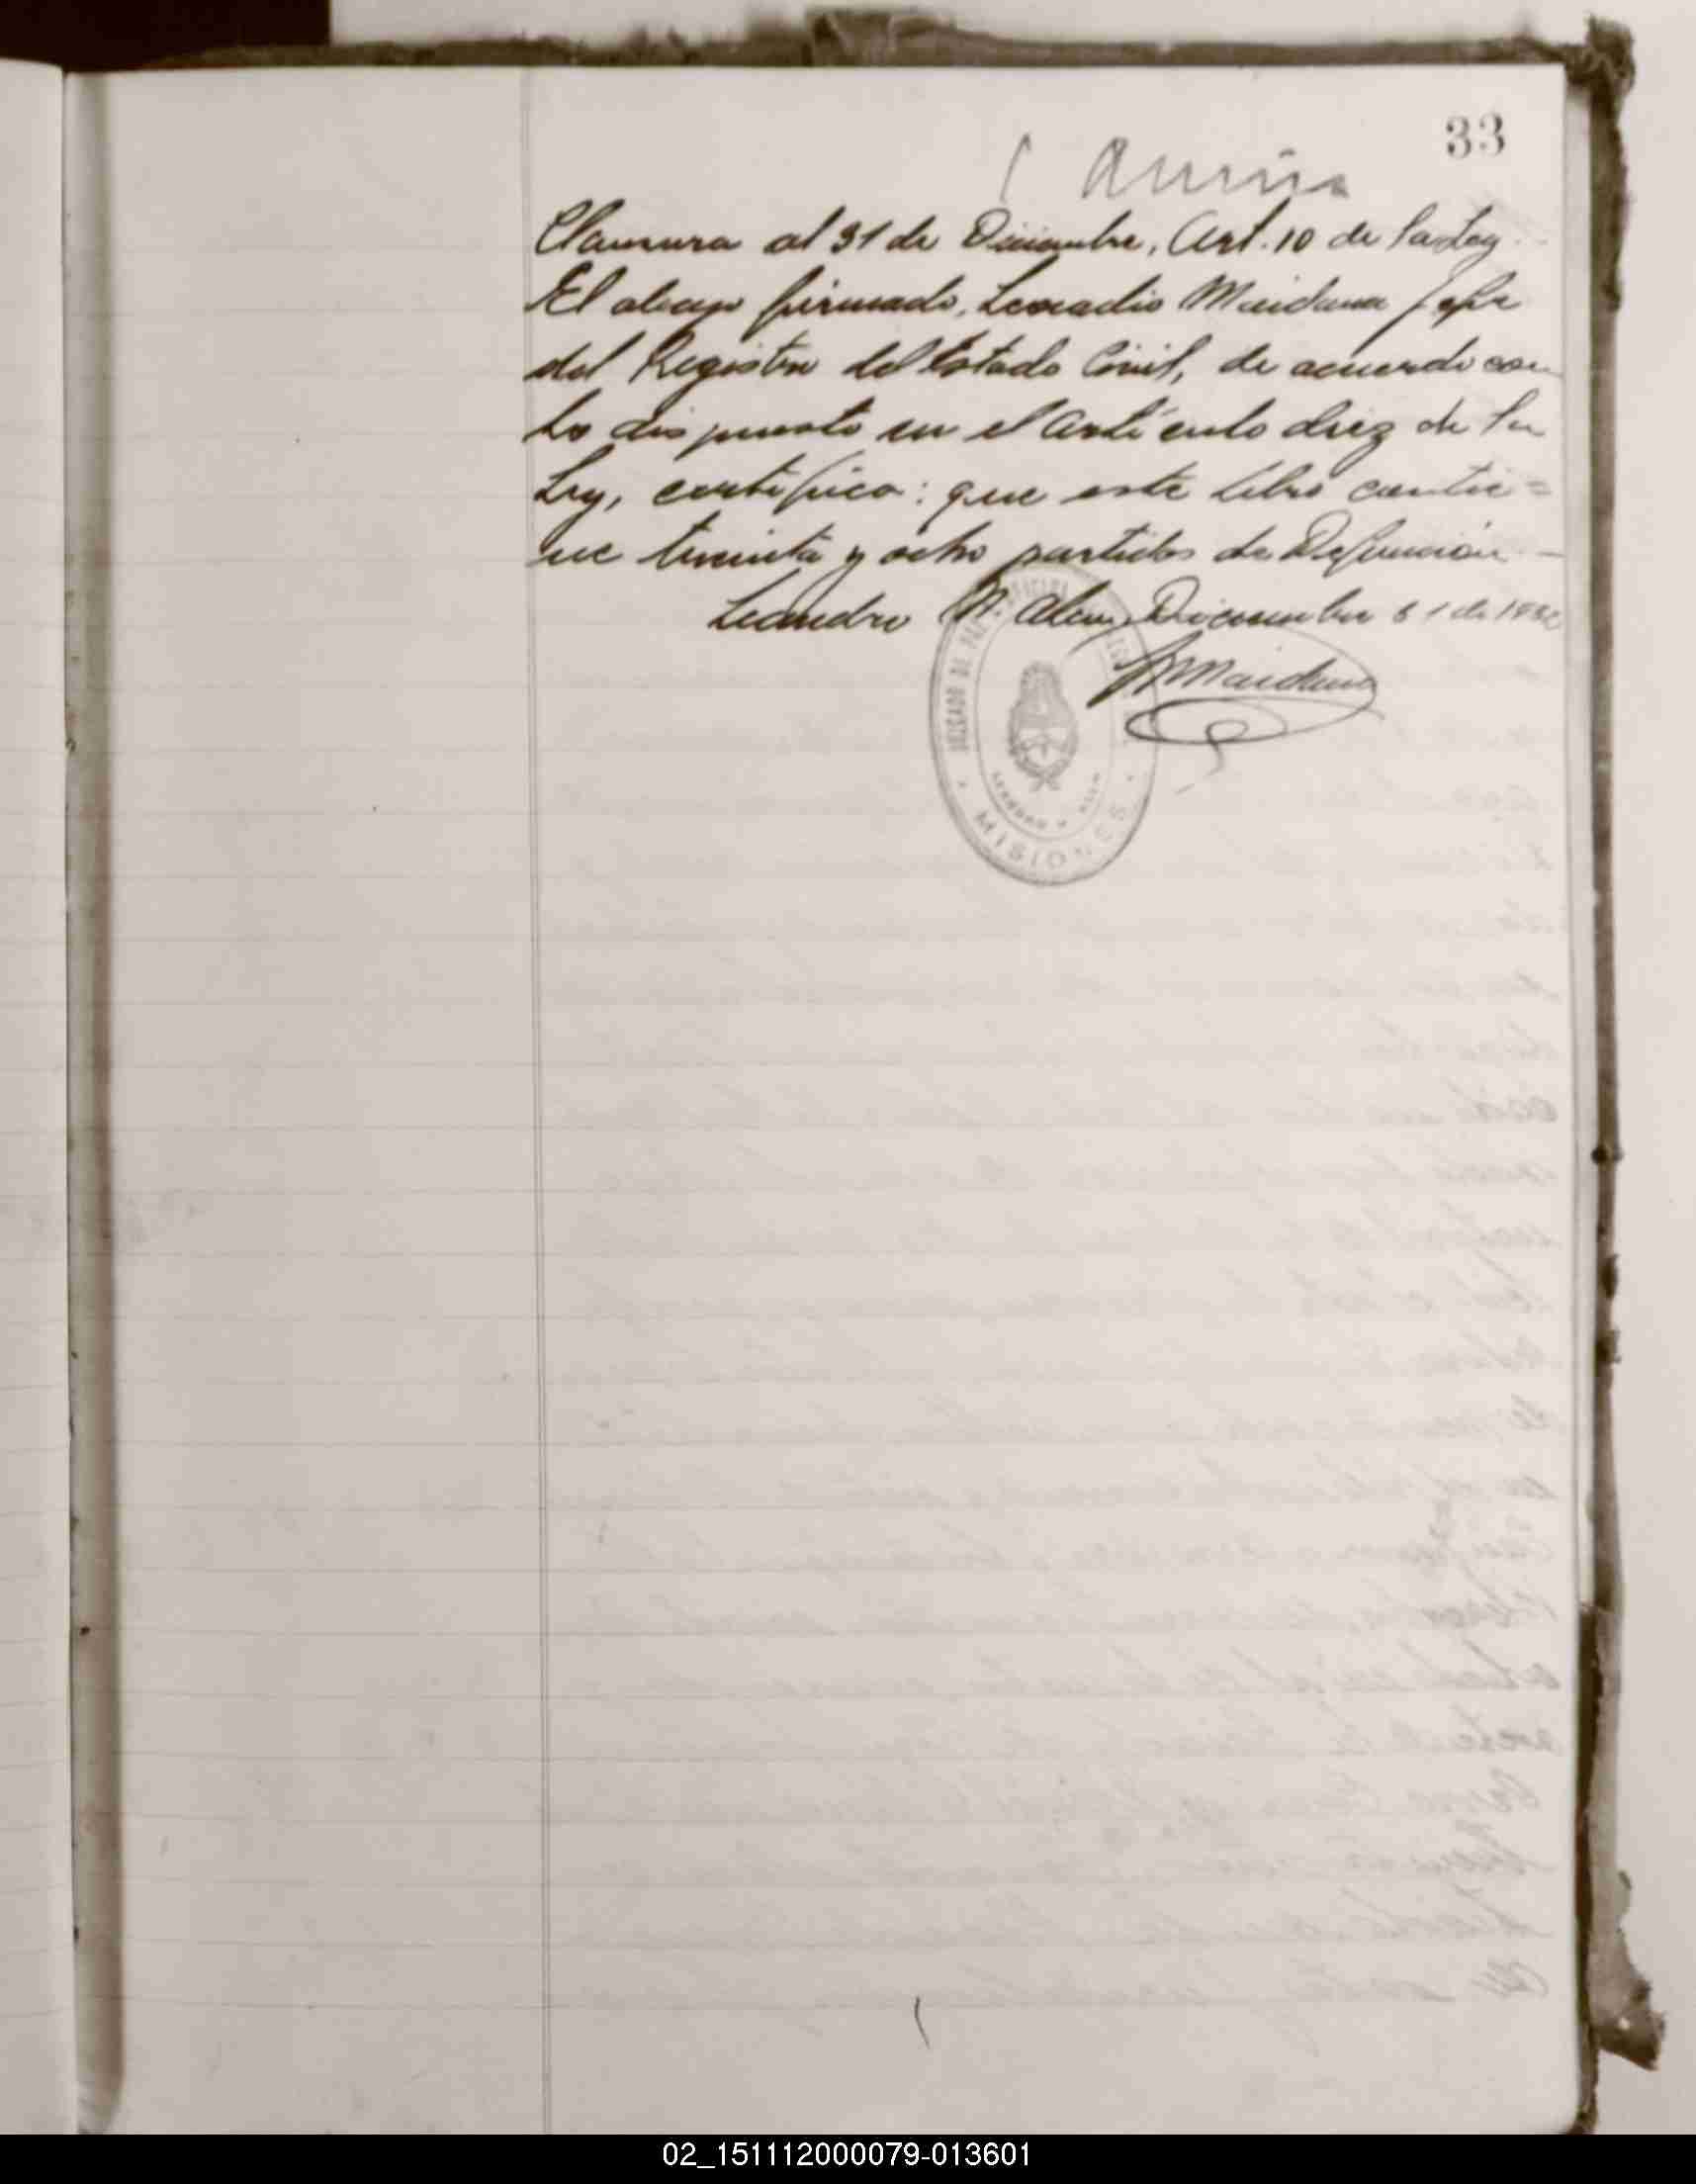 33
Clausura al 31 de Diciembre, Art. 10 de la Ley.
El abajo firmado, Leocadio Maidana Jefe
del Registro del Estado Civil, de acuerdo con
lo dispuesto en el artículo diez de la
Ley, certifico: que este Libro contie=
ne treinta y ocho partidas de Defunción.—
Leandro N. Alem, Diciembre 31 de
LMaidana
JUZGADO DE PAZ
LEANDRO N. ALEM
MISIONES
02_151112000079-013601